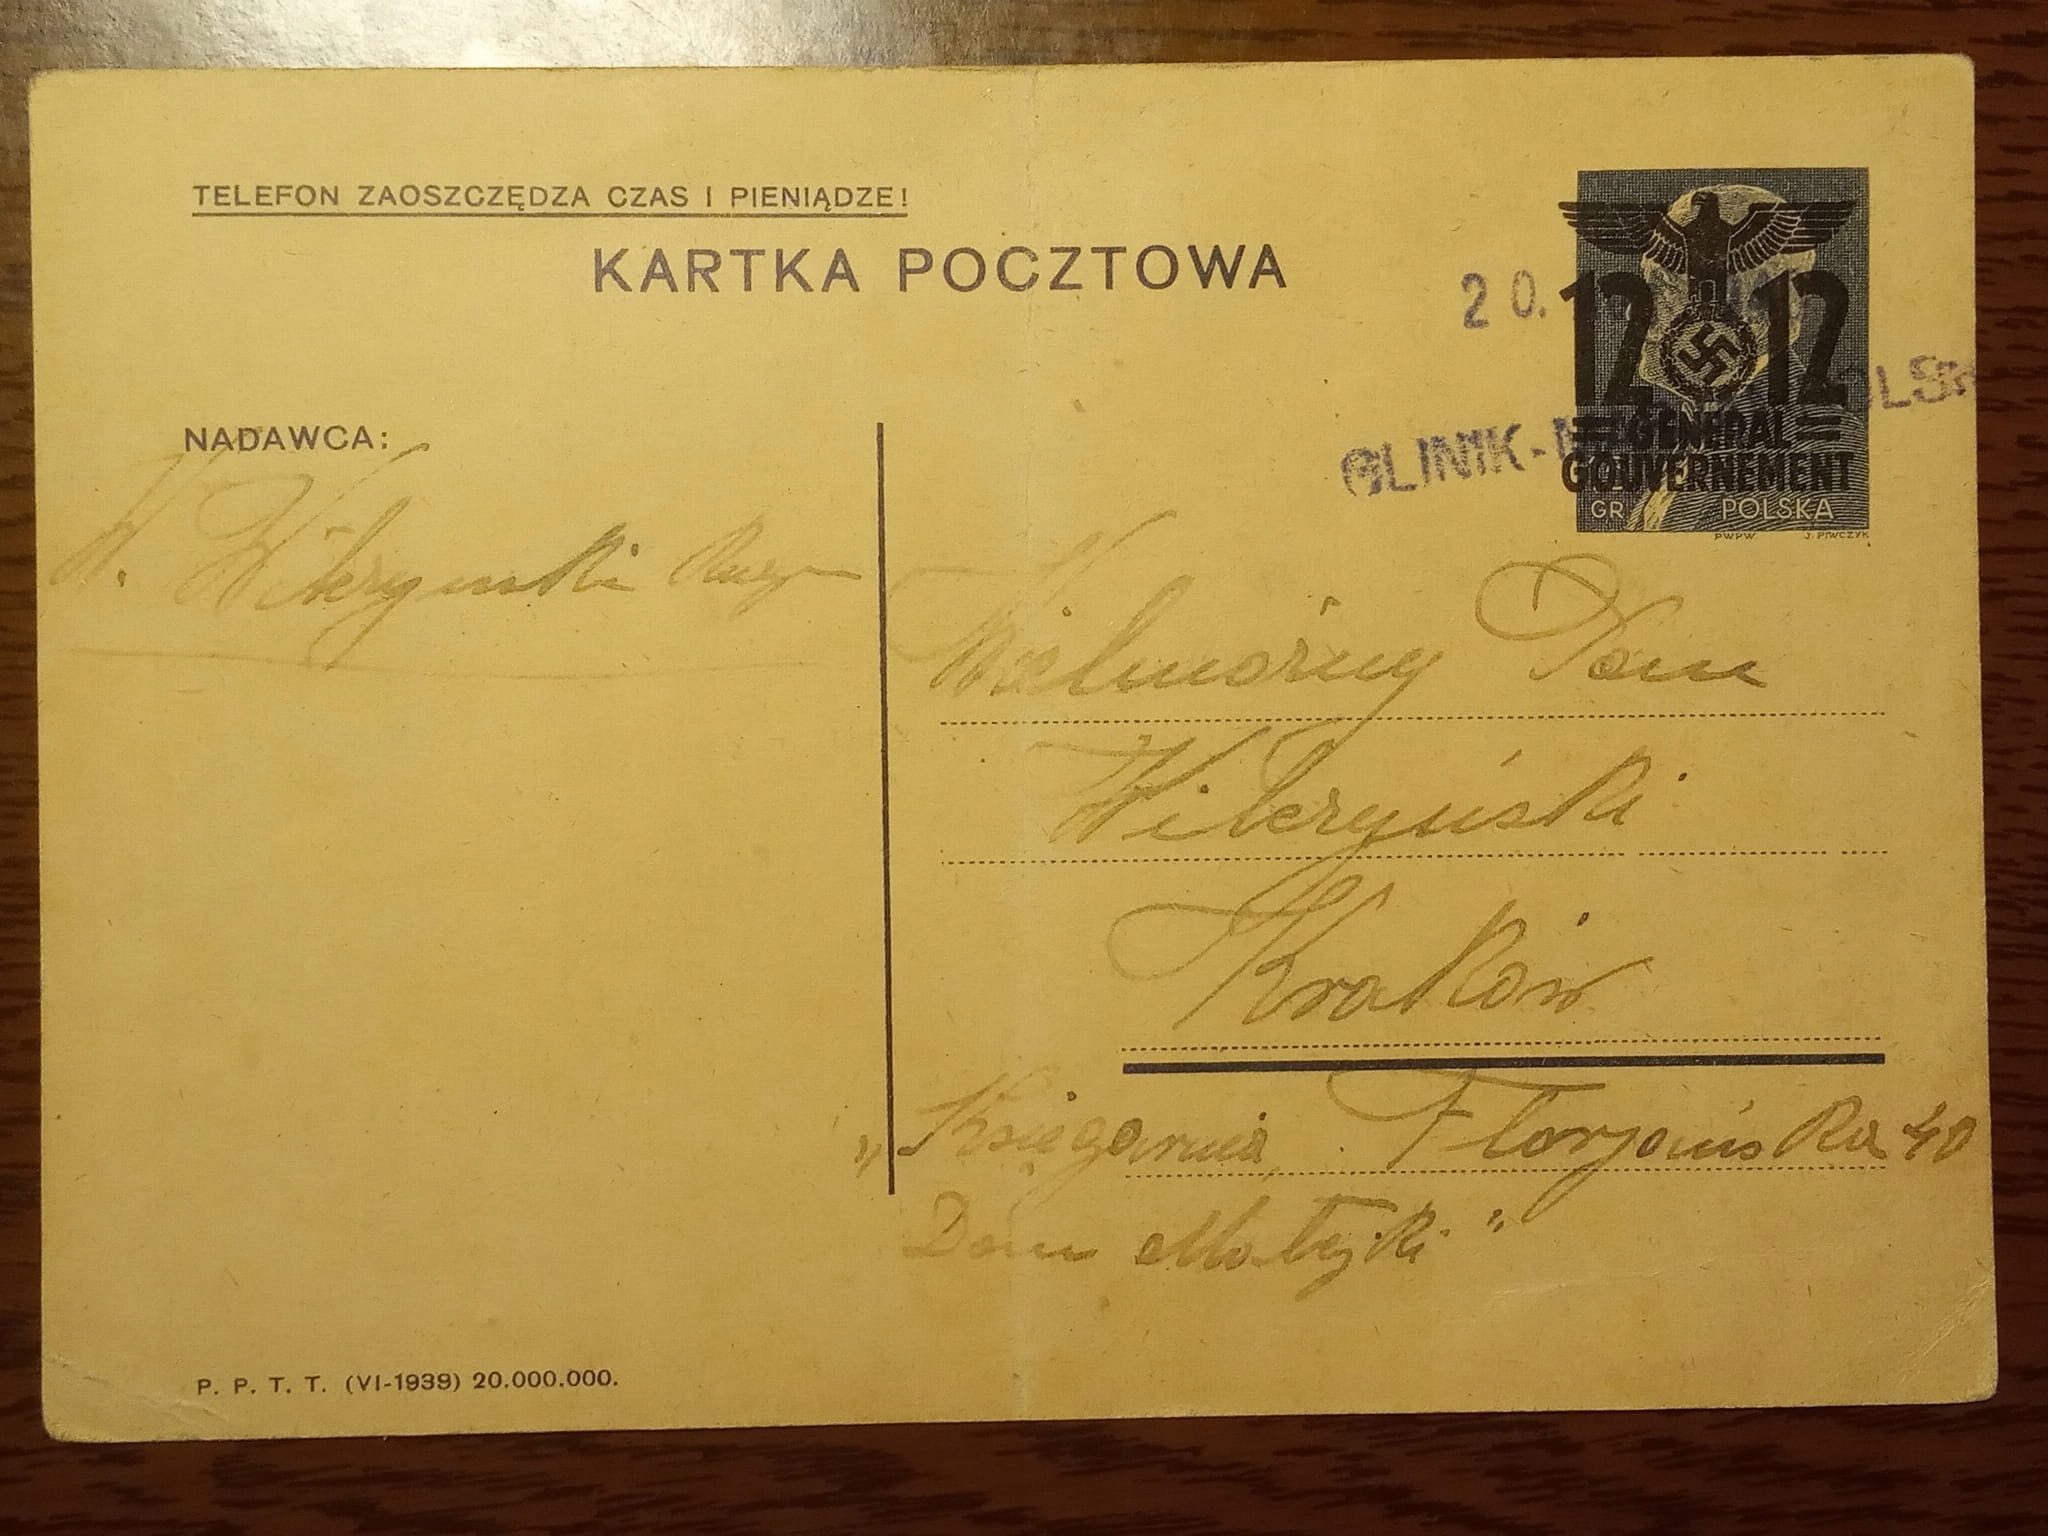 TELEFON ZAOSZCZĘDZA CZAS I PIENIĄDZE!
KARTKA POCZTOWA
20.
12 12
GLINIK-
GENERAL
GOUVERNEMENT
GR POLSKA
PWPW. J. PIWCZYK
NADAWCA:
W. Wilczyński
Wielmożny Pan
Wilczyński
Kraków
"Księgarnia, Florjańska 40
Dom Matejki"
P. P. T. T. (VI-1939) 20.000.000.